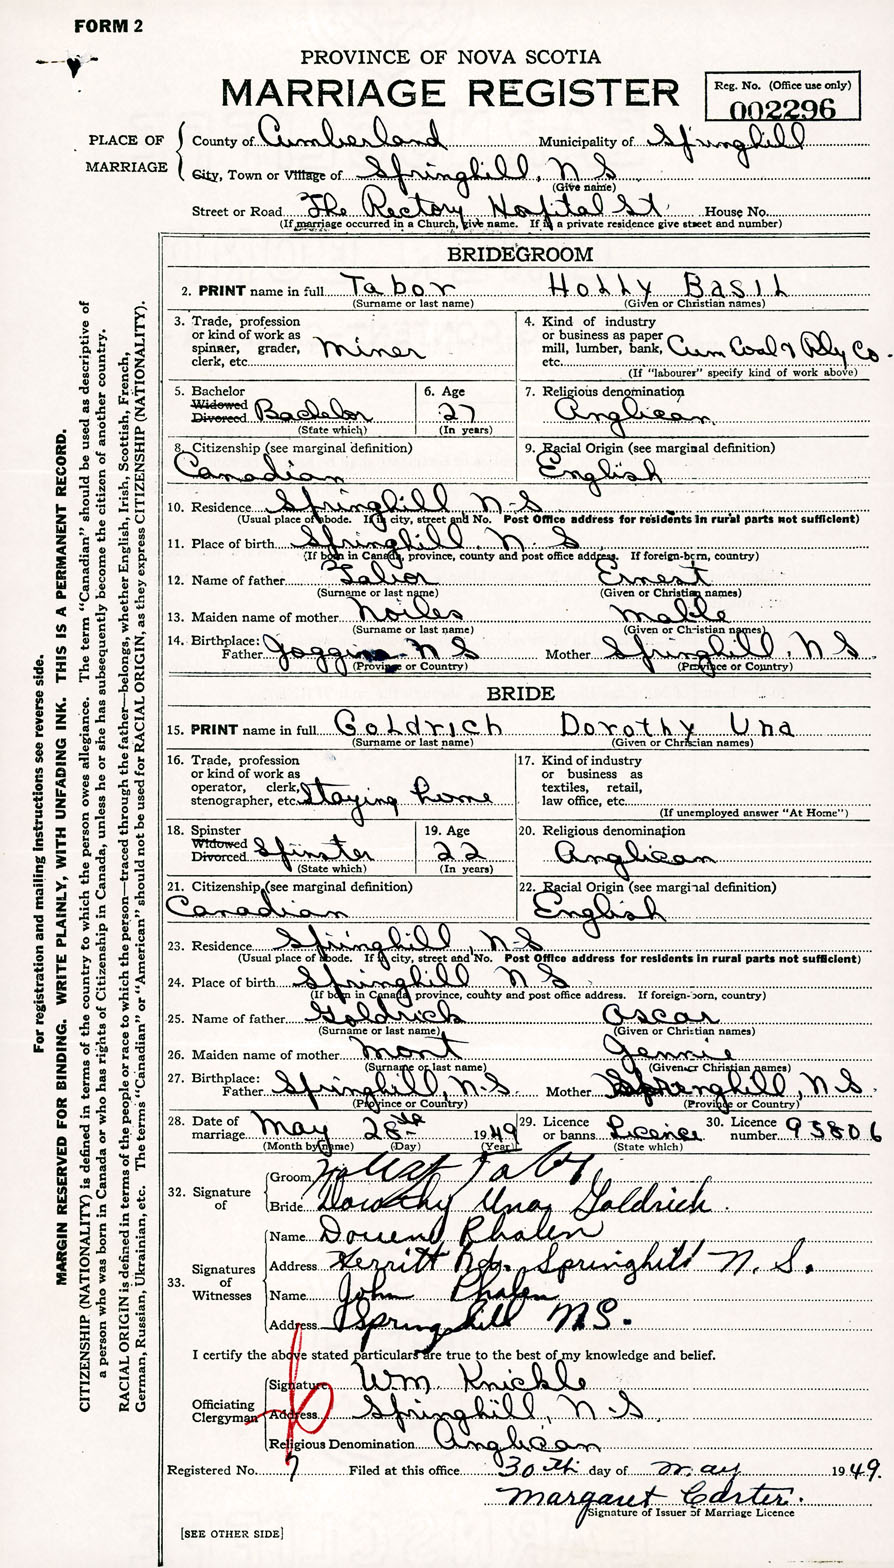 FORM 2
PROVINCE OF NOVA SCOTIA
MARRIAGE REGISTER
Reg. No. (Office use only)
002296
PLACE OF MARRIAGE
County of Cumberland Municipality of Springhill
City, Town or Village of Springhill, N S
(Give name)
Street or Road The Rectory Hospital St. House No.
(If marriage occurred in a Church, give name. If in a private residence give street and number)
BRIDEGROOM
2. PRINT name in full Tabor Holly Basil
(Surname or last name) (Given or Christian names)
3. Trade, profession or kind of work as spinner, grader, clerk, etc. Miner
4. Kind of industry or business as paper mill, lumber, bank, etc. Cum Coal & Rly Co.
(If "labourer" specify kind of work above)
5. Bachelor Widowed Divorced Bachelor
(State which)
6. Age 27
(In years)
7. Religious denomination Anglican
8. Citizenship (see marginal definition) Canadian
9. Racial Origin (see marginal definition) English
10. Residence Springhill N-S
(Usual place of abode. If in city, street and No. Post Office address for residents in rural parts not sufficient)
11. Place of birth Springhill. N. S
(If born in Canada, province, county and post office address. If foreign-born, country)
12. Name of father Tabor Ernest
(Surname or last name) (Given or Christian names)
13. Maiden name of mother Noiles Mable
(Surname or last name) (Given or Christian names)
14. Birthplace: Father Joggins N S Mother Springhill, N S
(Province or Country) (Province or Country)
BRIDE
15. PRINT name in full Goldrich Dorothy Una
(Surname or last name) (Given or Christian names)
16. Trade, profession or kind of work as operator, clerk, stenographer, etc. Staying home
17. Kind of industry or business as textiles, retail, law office, etc.
(If unemployed answer "At Home")
18. Spinster Widowed Divorced Spinster
(State which)
19. Age 22
(In years)
20. Religious denomination Anglican
21. Citizenship (see marginal definition) Canadian
22. Racial Origin (see marginal definition) English
23. Residence Springhill, N-S
(Usual place of abode. If in city, street and No. Post Office address for residents in rural parts not sufficient)
24. Place of birth Springhill N S
(If born in Canada province, county and post office address. If foreign-born, country)
25. Name of father Goldrich Oscar
(Surname or last name) (Given or Christian names)
26. Maiden name of mother Mont Jennie
(Surname or last name) (Given or Christian names)
27. Birthplace: Father Springhill, N-S Mother Springhill, N S
(Province or Country) (Province or Country)
28. Date of marriage May 28th 1949
(Month by name) (Day) (Year)
29. Licence or banns Licence
(State which)
30. Licence number 95806
32. Signature of
Groom Tabor
Bride Dorothy Una Goldrich
33. Signatures of Witnesses
Name Phalen
Address Herritt Rd. Springhill N. S.
Name John Phalen
Address Springhill N.S.
I certify the above stated particulars are true to the best of my knowledge and belief.
Officiating Clergyman
Signature Wm. Knickle
Address Springhill, N-S
Religious Denomination Anglican
Registered No. 7 Filed at this office 30th day of May 1949.
Margaret Carter.
Signature of Issuer of Marriage Licence
[SEE OTHER SIDE]
For registration and mailing instructions see reverse side.
MARGIN RESERVED FOR BINDING. WRITE PLAINLY, WITH UNFADING INK. THIS IS A PERMANENT RECORD.
CITIZENSHIP (NATIONALITY) is defined in terms of the country to which the person owes allegiance. The term "Canadian" should be used as descriptive of
a person who was born in Canada or who has rights of Citizenship in Canada, unless he or she has subsequently become the citizen of another country.
RACIAL ORIGIN is defined in terms of the people or race to which the person—traced through the father—belongs, whether English, Irish, Scottish, French,
German, Russian, Ukrainian, etc. The terms "Canadian" or "American" should not be used for RACIAL ORIGIN, as they express CITIZENSHIP (NATIONALITY).